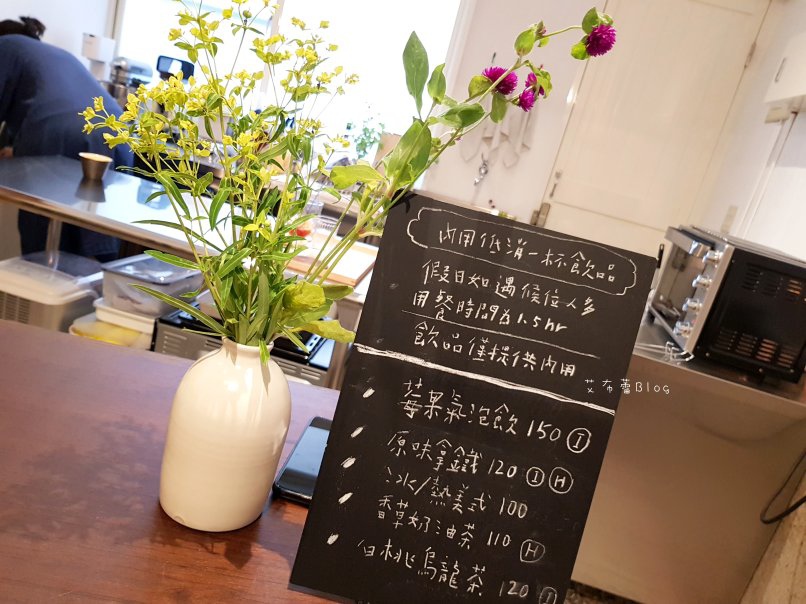 內用低消一杯飲品
假日如遇候位人多
用餐時間為1.5hr
飲品僅提供內用
莓果氣泡飲 150 Ⓘ
原味拿鐵 120 Ⓘ Ⓗ
冰/熱美式 100
香草奶油茶 110 Ⓗ
白桃烏龍茶 120 Ⓘ
艾布蕾Blog